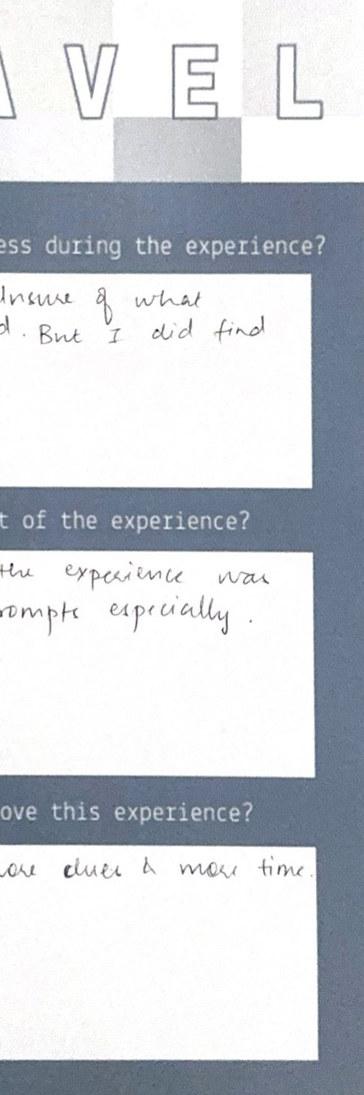 AVEL
ess during the experience?
Unsure of what
d. But I did find
t of the experience?
the experience was
rompts especially.
ove this experience?
ore clues & more time.